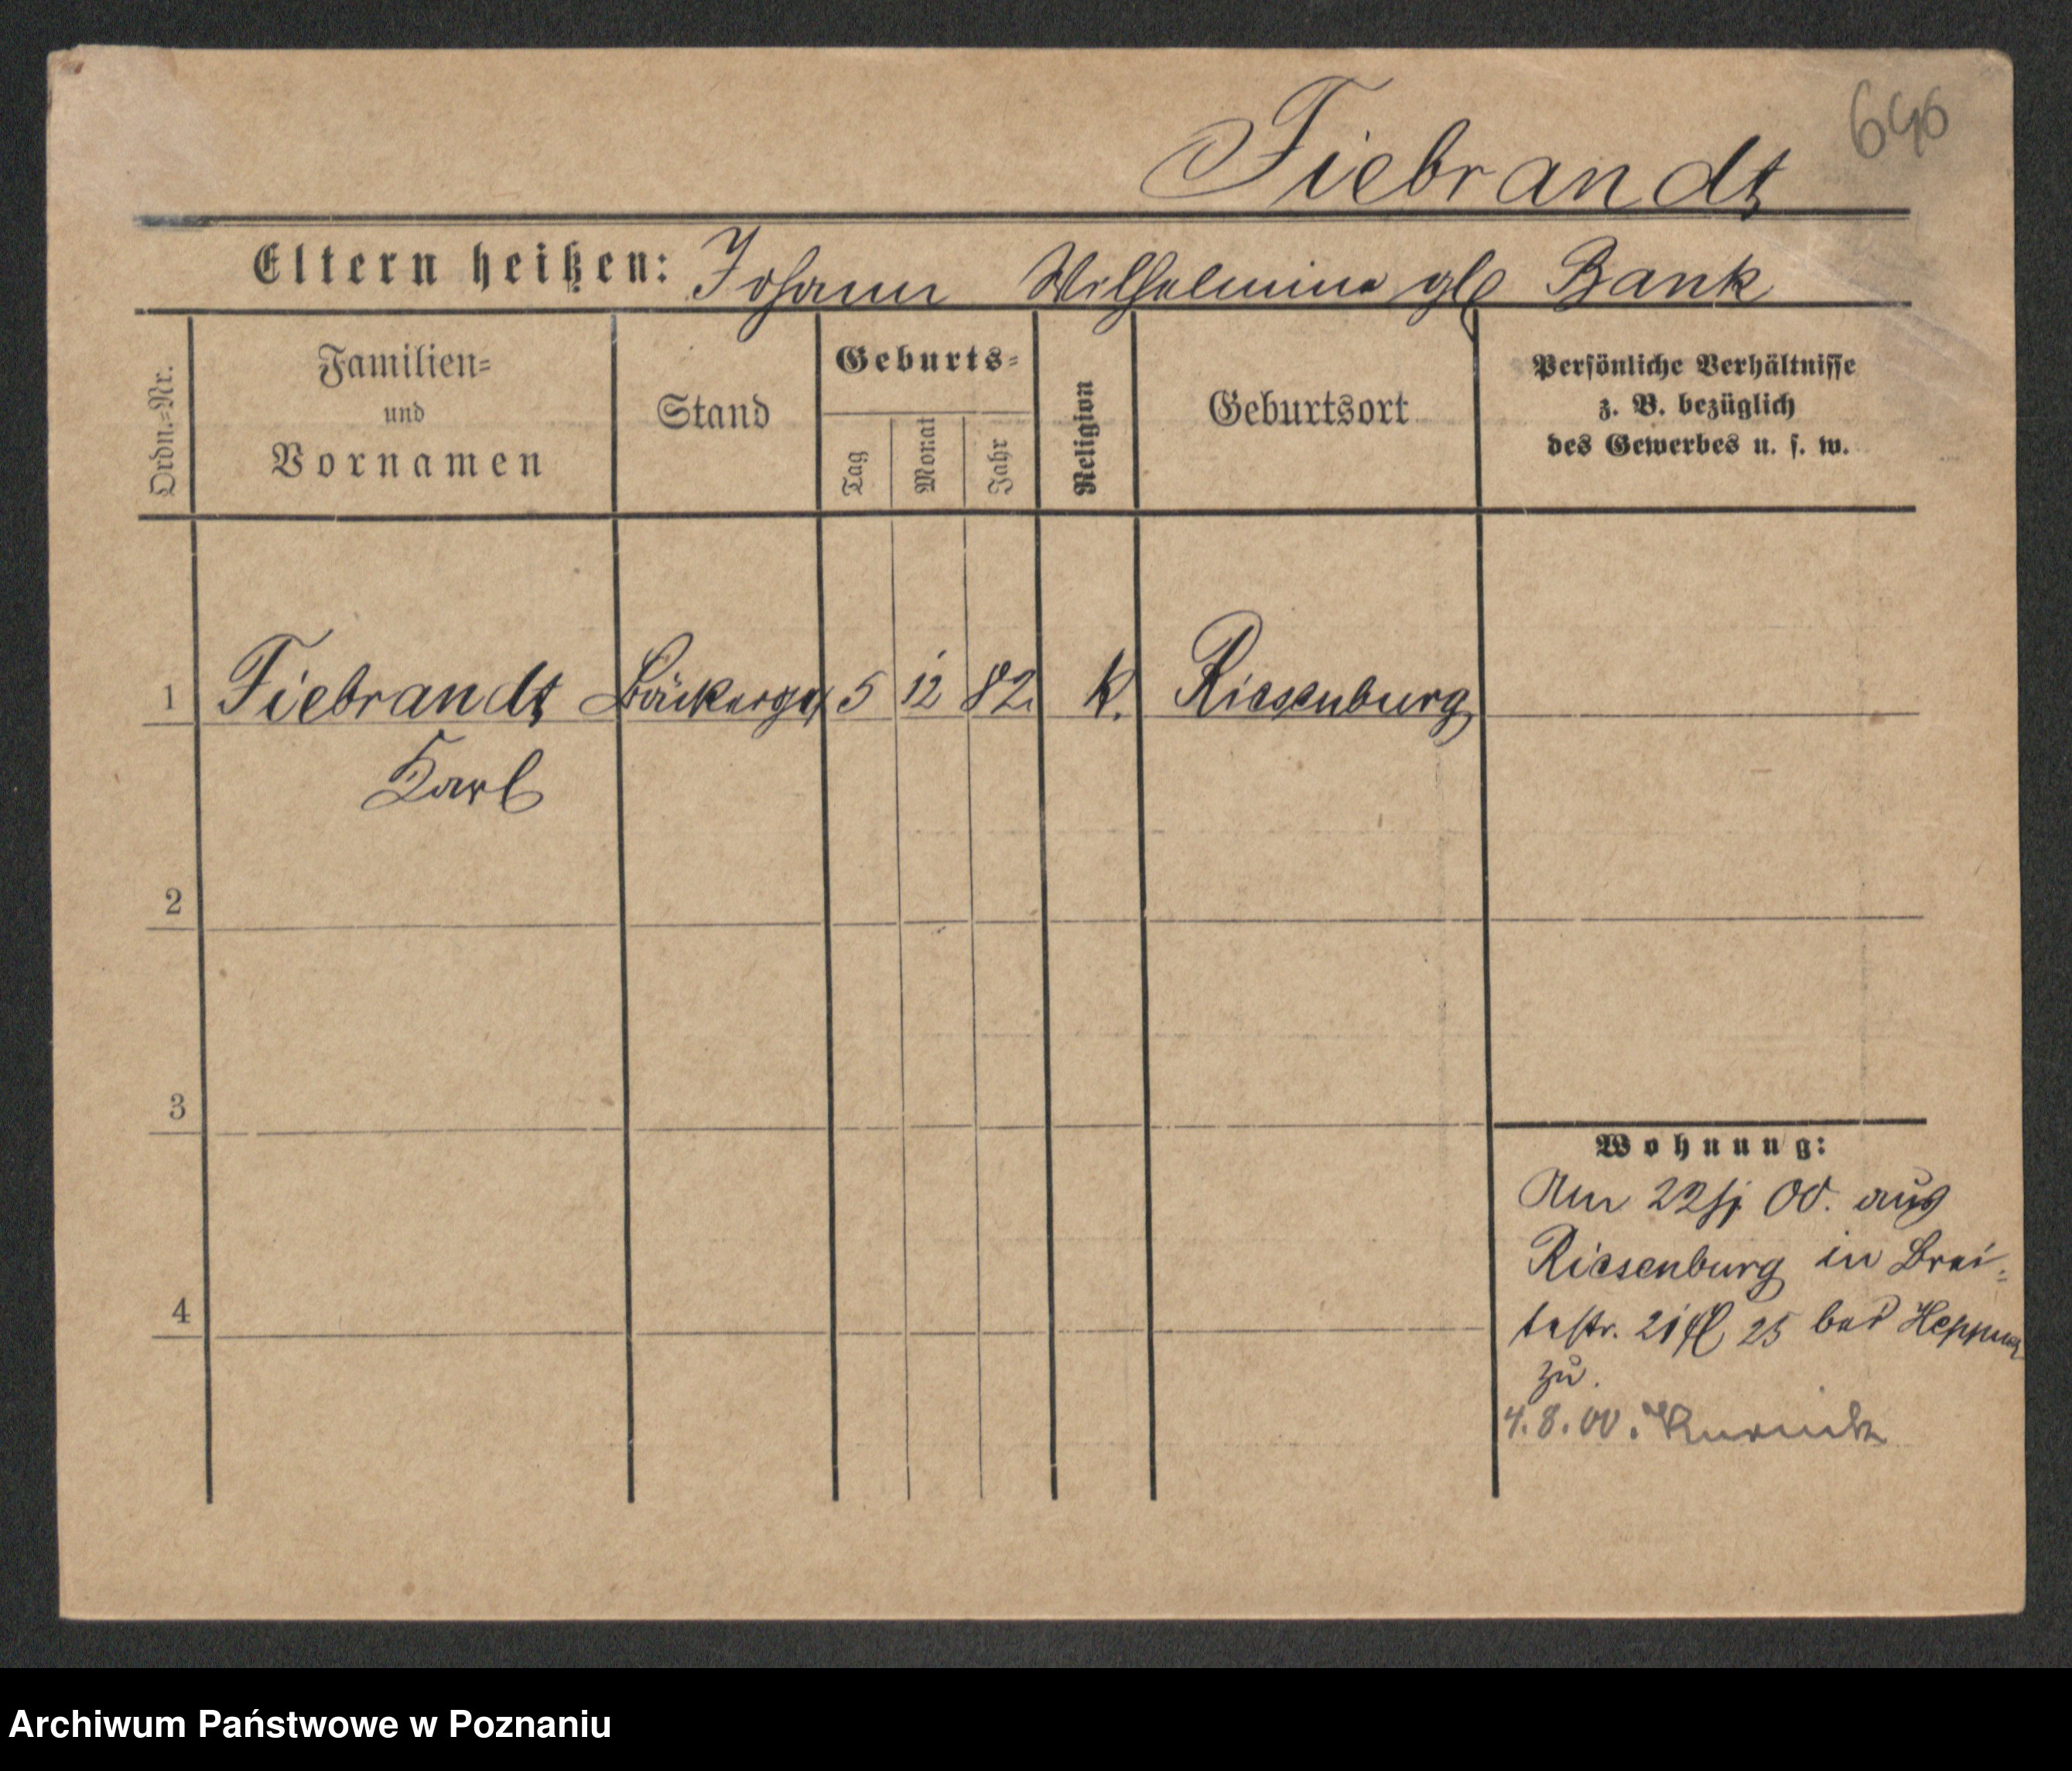 646
Fiebrandt
Eltern heißen: Johann Wilhelmine gb Bank
Ordn.=Nr.
Familien=
und
Vornamen
Stand
Geburts=
Tag
Monat
Jahr
Religion
Geburtsort
Persönliche Verhältnisse
z. B. bezüglich
des Gewerbes u. s. w.
1 Fiebrandt Bäckerges 5 12 82. K. Riesenburg
Karl
2
3
4
Wohnung:
Am 22/ 00. aus
Riesenburg in Brei=
testr. 21 25 bei Heppner
zu.
4.8.00. Kurnik
Archiwum Państwowe w Poznaniu